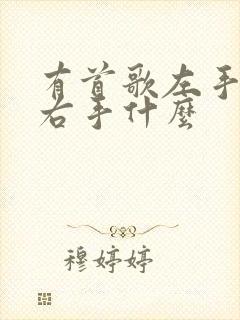 有首歌左手
右手什麼
穆婷婷